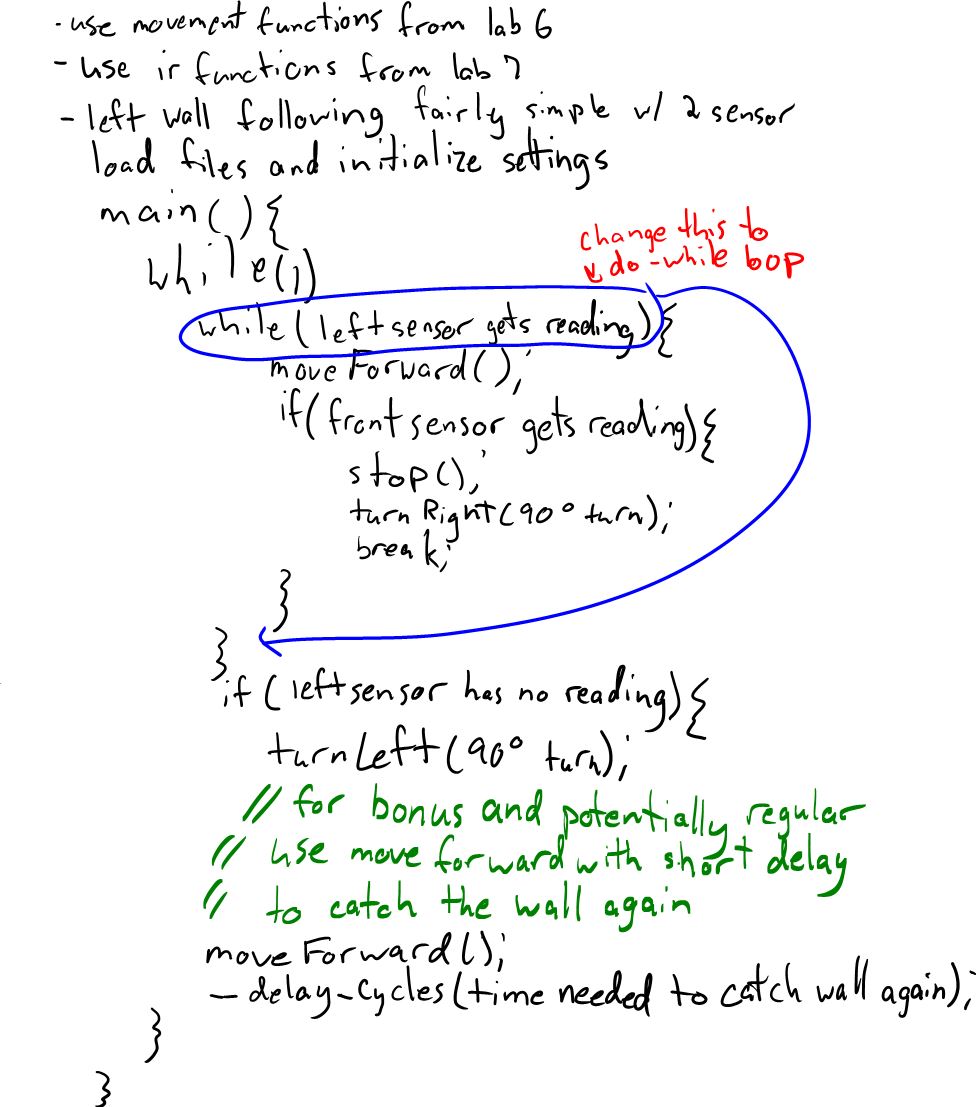 - use movement functions from lab 6
- use ir functions from lab 7
- left wall following fairly simple w/ 2 sensor
load files and initialize settings
main(){
while(1)
change this to
do-while loop
while(left sensor gets reading){
moveForward();
if(front sensor gets reading){
stop();
turnRight(90° turn);
break;
}
}
if(left sensor has no reading){
turnLeft(90° turn);
// for bonus and potentially regular
// use move forward with short delay
// to catch the wall again
moveForward();
_delay_cycles(time needed to catch wall again);
}
}